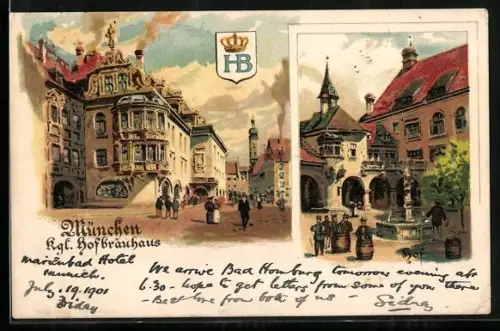 HB
München
Kgl. Hofbräuhaus
Hof
Marienbad Hotel
Munich.
July. 19.1901
Friday
We arrive Bad Homburg tomorrow evening abt
6.30 - hope to get letters from some of you there
- Best love from both of us -
Sidney